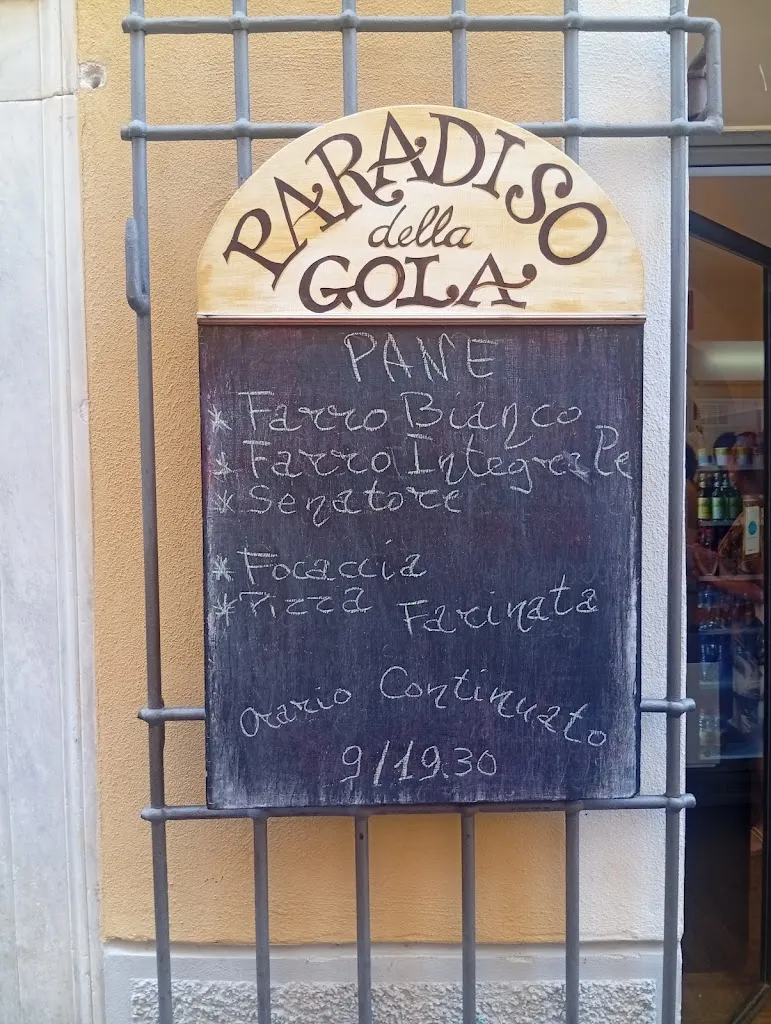 PARADISO
della
GOLA
PANE
* Farro Bianco
* Farro Integrale
* Senatore
* Focaccia
* Pizza Farinata
Orario Continuato
9/19.30